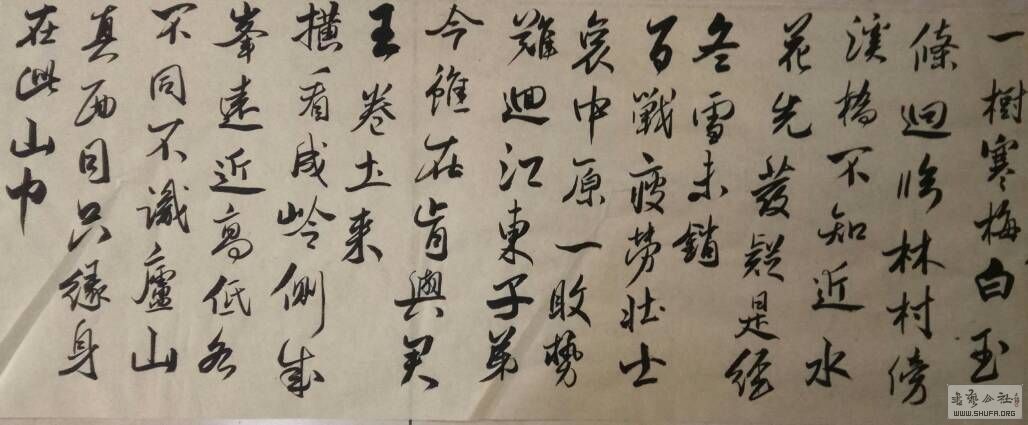 一樹寒梅白玉
條迥臨林村傍
溪橋不知近水
花先發疑是經
冬雪未銷
百戰疲勞壯士
哀中原一敗勢
難迴江東子弟
今雖在肯與君
王卷土来
横看成岭側成
峯遠近高低各
不同不識廬山
真面目只緣身
在此山中
书藝公社
WWW.SHUFA.ORG